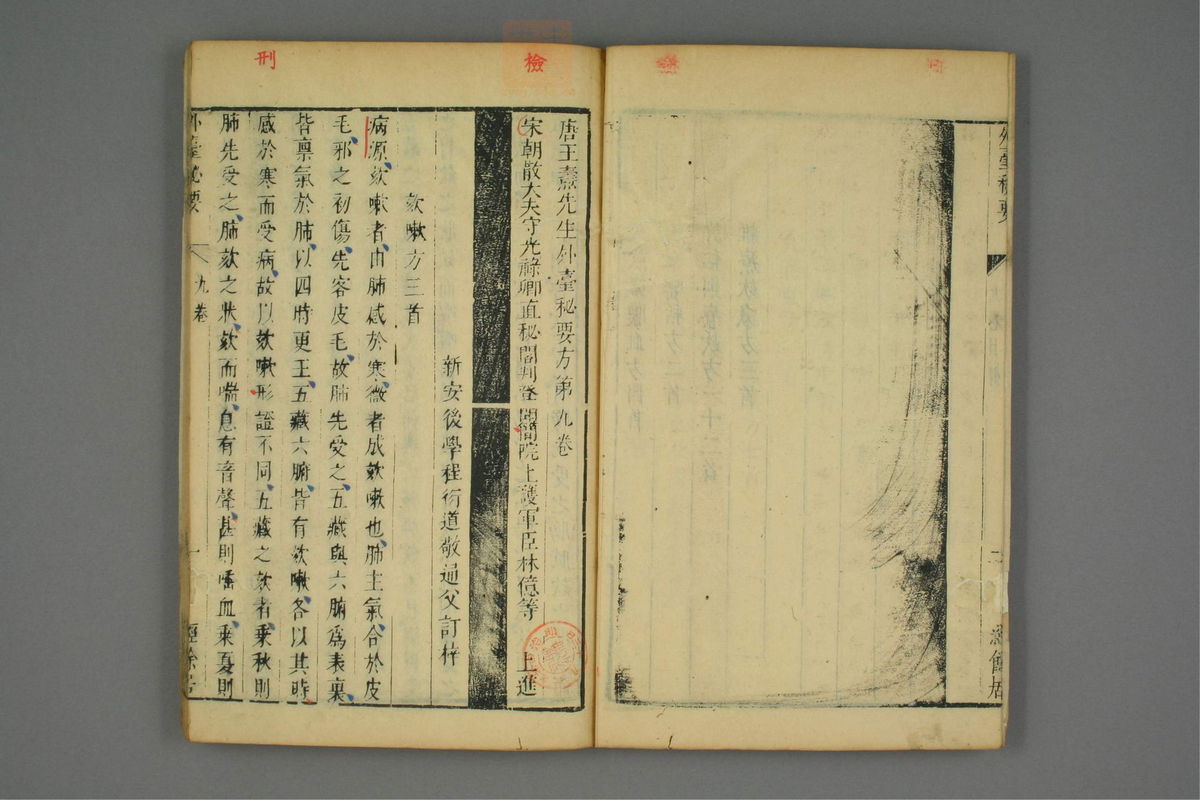 檢
刑
外臺秘要
唐王燾先生外臺秘要方第九卷
宋朝散大夫守光祿卿直秘閣判登聞簡院上護軍臣林億等 上進
新安後學程衍道敬通父訂梓
欬嗽方三首
病源欬嗽者由肺感於寒微者成欬嗽也肺主氣合於皮
毛邪之初傷先客皮毛故肺先受之五藏與六腑爲表裏
皆稟氣於肺以四時更王五藏六腑皆有欬嗽各以其時
感於寒而受病故以欬嗽形證不同五藏之欬者乘秋則
肺先受之肺欬之狀欬而喘息有音聲甚則唾血乘夏則
外臺秘要 九卷 一 經餘居